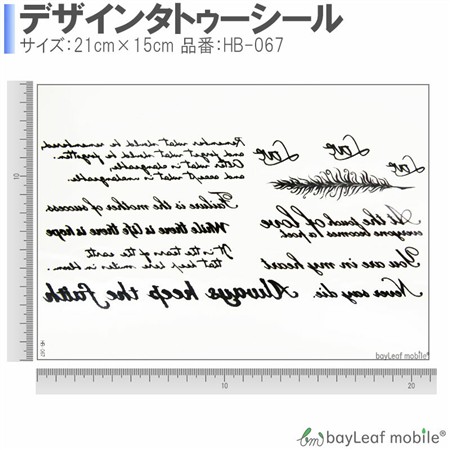 デザインタトゥーシール
サイズ:21cm×15cm 品番:HB-067
Remember what should be remembered,
and forget what should be forgotten.
Alter what is changeable,
and accept what is unchangeable.
Failure is the mother of success
While there is life there is hope
It is the tears of the earth
that keep her smiles in bloom.
Always keep the faith
Love
Love
Love
At the touch of love
everyone becomes a poet
You are in my heart
Never say die
HB-067
bayLeaf mobile®
10
10
20
bm bayLeaf mobile®